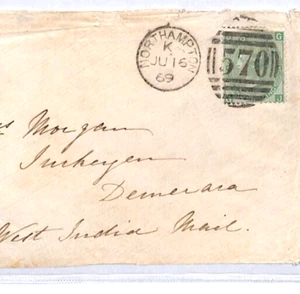 NORTHAMPTON
K
JU 16
69
570
G
Morgan
Demerara
West India Mail.